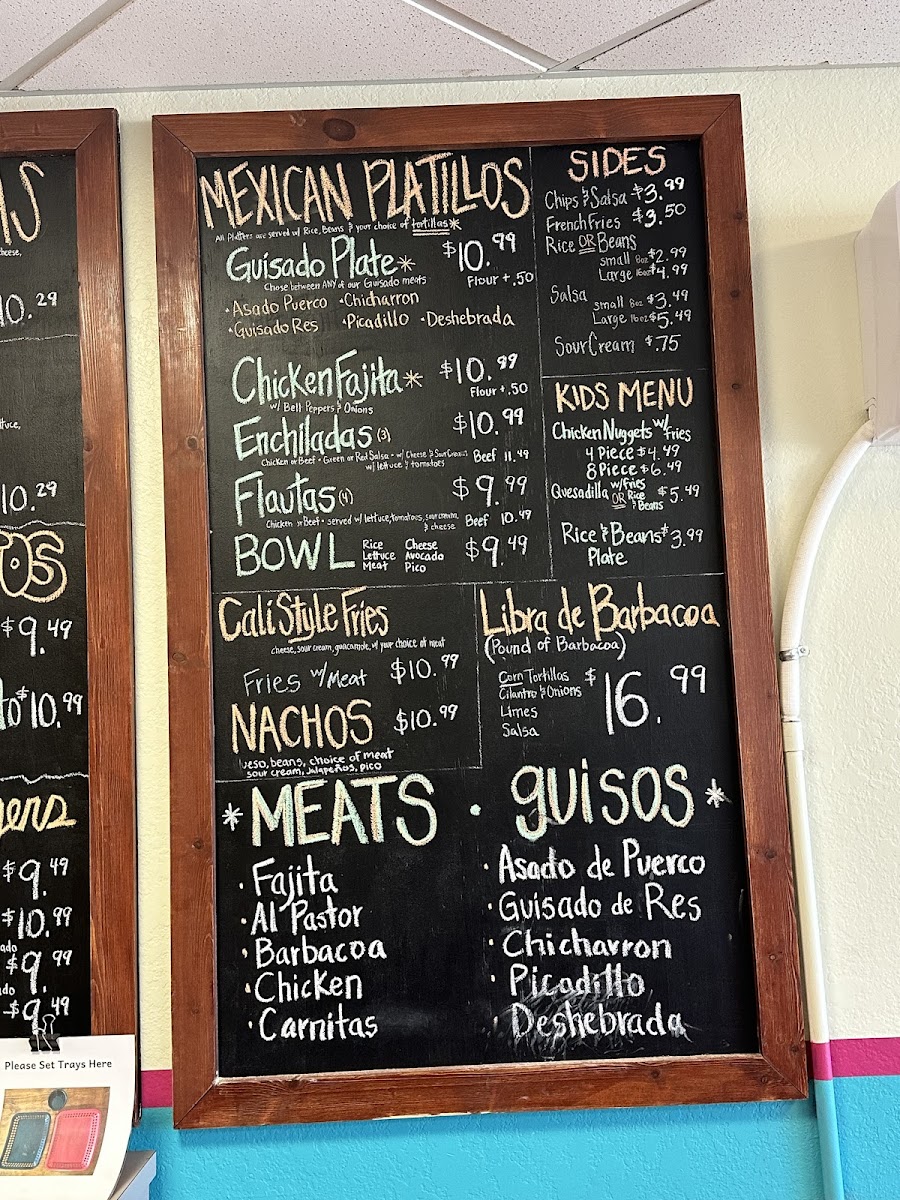 10.29
10.29
$9.49
$10.99
$9.49
$10.99
$9.99
$9.49
Please Set Trays Here
MEXICAN PLATILLOS
All Platters are served w/ Rice, Beans & your choice of tortillas*
Guisado Plate* $10.99
Chose between ANY of our Guisado meats Flour +.50
· Asado Puerco · Chicharron
· Guisado Res · Picadillo · Deshebrada
Chicken Fajita* $10.99
w/ Bell Peppers & Onions Flour +.50
Enchiladas (3) $10.99
Chicken or Beef - Green or Red Salsa - w/ Cheese & Sour Cream Beef 11.49
w/ lettuce & tomatoes
Flautas (4) $9.99
Chicken or Beef - served w/ lettuce, tomatoes, sour cream, Beef 10.49
& cheese
BOWL $9.49
Rice Cheese
Lettuce Avocado
Meat Pico
SIDES
Chips & Salsa $3.99
French Fries $3.50
Rice OR Beans
small 8oz $2.99
Large 16oz $4.99
Salsa small 8oz $3.49
Large 16oz $5.49
Sour Cream $.75
KIDS MENU
Chicken Nuggets w/ Fries
4 Piece $4.49
8 Piece $6.49
Quesadilla w/fries OR Rice & Beans $5.49
Rice & Beans $3.99
Plate
Cali Style Fries
cheese, sour cream, guacamole, w/ your choice of meat
Fries w/ Meat $10.99
NACHOS $10.99
ueso, beans, choice of meat
sour cream, jalapeños, pico
Libra de Barbacoa
(Pound of Barbacoa)
Corn Tortillas
Cilantro & Onions
Limes
Salsa
$16.99
* MEATS · guisos *
· Fajita
· Al Pastor
· Barbacoa
· Chicken
· Carnitas
· Asado de Puerco
· Guisado de Res
· Chicharron
· Picadillo
· Deshebrada